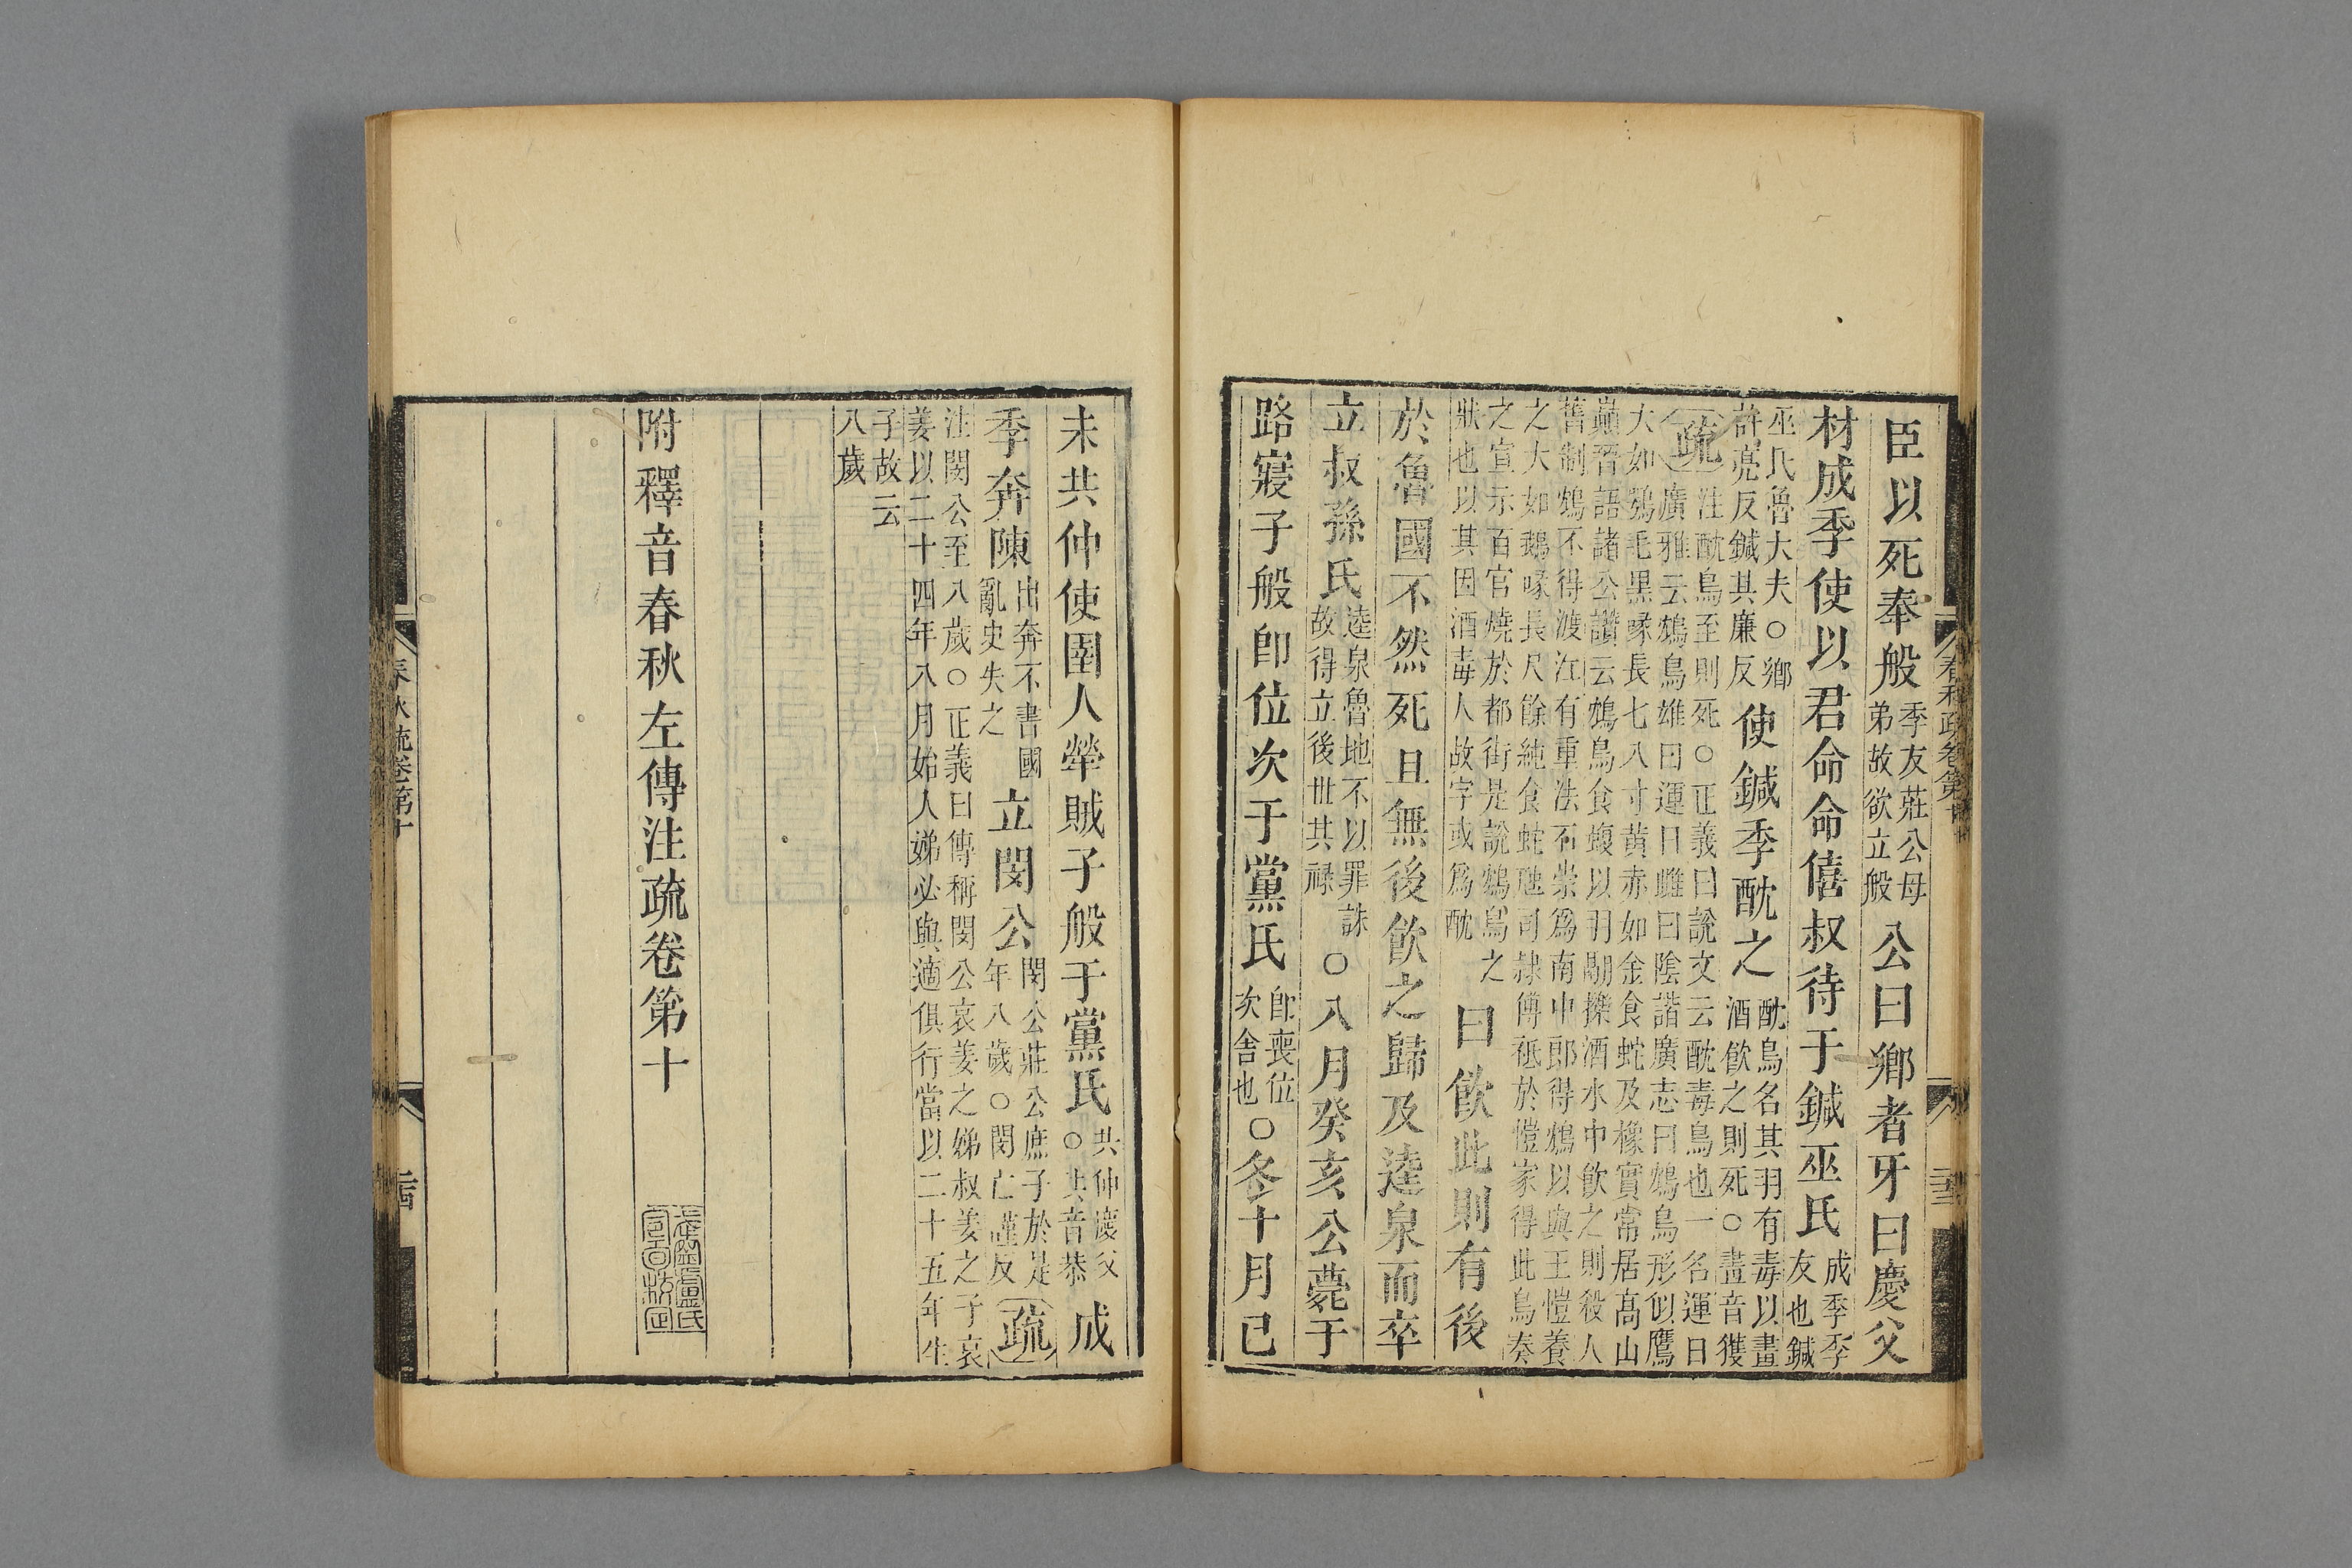 臣以死奉般季友莊公母弟故欲立般公曰鄉者牙曰慶父
材成季使以君命命僖叔待于鍼巫氏成季季友也鍼
巫氏魯大夫○鄉許亮反鍼其廉反使鍼季酖之酖鳥名其羽有毒以畫酒飲之則死○畫音獲
疏注酖鳥至則死○正義曰說文云酖毒鳥也一名運日
廣雅云鴆鳥雄曰運日雌曰陰諧廣志曰鴆鳥形似鷹
大如鴞毛黑喙長七八寸黃赤如金食蛇及橡實常居高山
巔晉語諸公讚云鴆鳥食蝮以羽翮擽酒水中飲之則殺人
舊制鴆不得渡江有重法石崇爲南中郎得鴆以與王愷養
之大如鵝喙長尺餘純食蛇虺司隷傅祗於愷家得此鳥奏
之宣示百官燒於都街是說鴆鳥之狀也以其因酒毒人故字或爲酖曰飲此則有後
於魯國不然死且無後飲之歸及逵泉而卒
立叔孫氏逵泉魯地不以罪誅故得立後世其祿○八月癸亥公薨于
路寢子般卽位次于黨氏卽喪位次舍也○冬十月己
未共仲使圉人犖賊子般于黨氏共仲慶父○共音恭成
季奔陳出奔不書國亂史失之立閔公閔公莊公庶子於是年八歲○閔亡謹反疏
注閔公至八歲○正義曰傳稱閔公哀姜之娣叔姜之子哀
姜以二十四年八月始入娣必與適俱行當以二十五年生
子故云
八歲
附釋音春秋左傳注疏卷第十
春秋疏卷第十